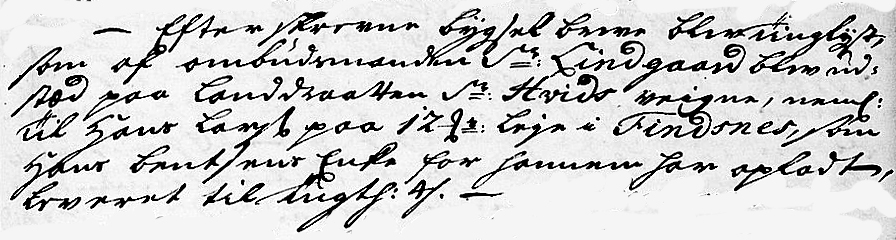 — Efterskrevne bÿgsel breve blev tinglÿst,
som af ombudsmanden Sr: Lindgaard blev ud-
stæd paa Landdraatten Sr: Hvids veigne, neml:
til Hans Lars: paa 12 Mk: leje i Findsnes, som
Hans Bentsens Enke for hannem har opladt,
leveret til Tugth: 4 s. —